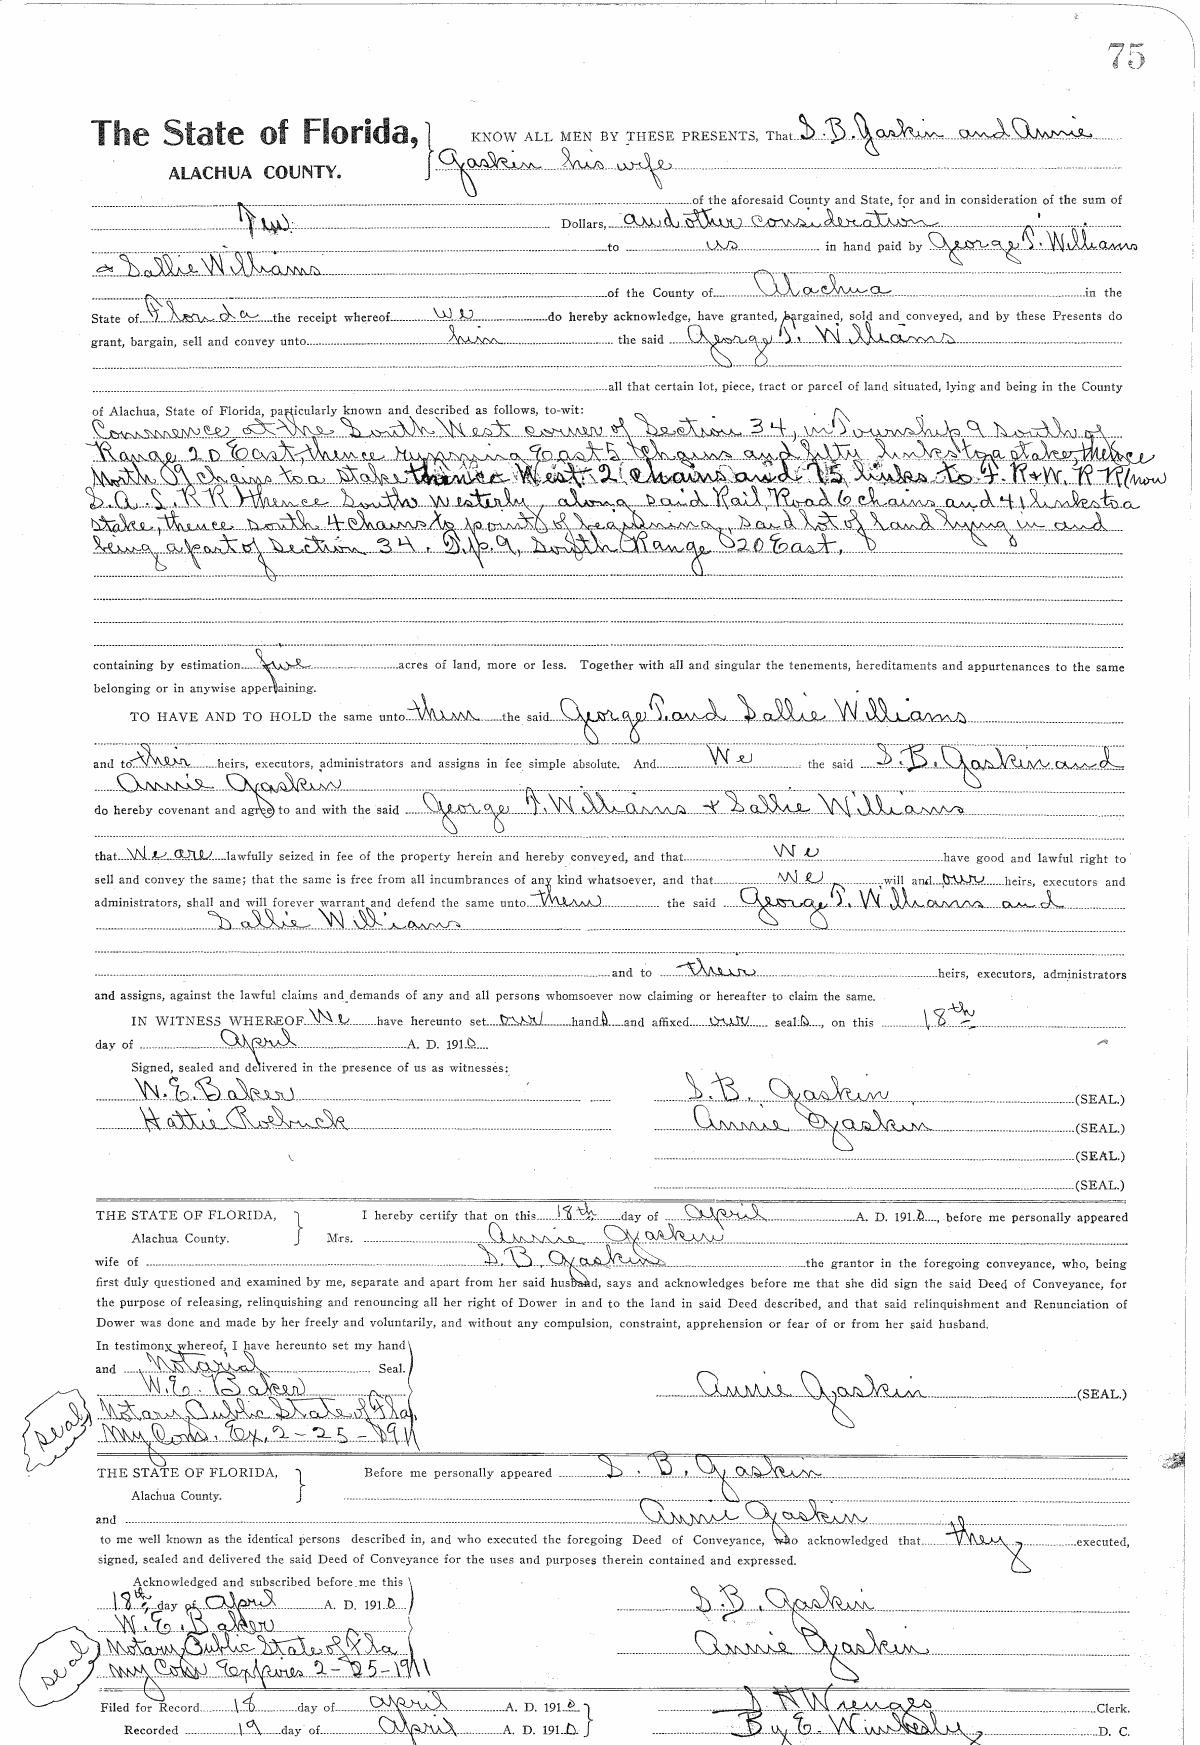 75
The State of Florida, KNOW ALL MEN BY THESE PRESENTS, That S. B. Gaskin and Annie
ALACHUA COUNTY. Gaskin his wife
of the aforesaid County and State, for and in consideration of the sum of
Ten Dollars, and other consideration
to us in hand paid by George T. Williams
& Sallie Williams
of the County of Alachua in the
State of Florida the receipt whereof we do hereby acknowledge, have granted, bargained, sold and conveyed, and by these Presents do
grant, bargain, sell and convey unto him the said George T. Williams
all that certain lot, piece, tract or parcel of land situated, lying and being in the County
of Alachua, State of Florida, particularly known and described as follows, to-wit:
Commence at the South West corner of Section 34, in Township 9 South of
Range 20 East, thence running East 5 chains and fifty links to a stake, thence
North 9 chains to a stake thence West 2 chains and 75 links to F. R & W. R R (now
S. A. L. R R) thence South Westerly along said Rail Road 6 chains and 41 links to a
stake, thence south 4 chains to point of beginning, said lot of land lying in and
being a part of Section 34. Tp. 9, South Range 20 East.
containing by estimation five acres of land, more or less. Together with all and singular the tenements, hereditaments and appurtenances to the same
belonging or in anywise appertaining.
TO HAVE AND TO HOLD the same unto them the said George T. and Sallie Williams
and to their heirs, executors, administrators and assigns in fee simple absolute. And We the said S. B. Gaskin and
Annie Gaskin
do hereby covenant and agree to and with the said George T. Williams & Sallie Williams
that We are lawfully seized in fee of the property herein and hereby conveyed, and that We have good and lawful right to
sell and convey the same; that the same is free from all incumbrances of any kind whatsoever, and that we will and our heirs, executors and
administrators, shall and will forever warrant and defend the same unto them the said George T. Williams and
Sallie Williams
and to their heirs, executors, administrators
and assigns, against the lawful claims and demands of any and all persons whomsoever now claiming or hereafter to claim the same.
IN WITNESS WHEREOF We have hereunto set our hands and affixed our seals, on this 18th
day of April A. D. 1910
Signed, sealed and delivered in the presence of us as witnesses:
W. E. Baker S. B. Gaskin (SEAL.)
Hattie Roebuck Annie Gaskin (SEAL.)
(SEAL.)
(SEAL.)
THE STATE OF FLORIDA, I hereby certify that on this 18th day of April A. D. 1910, before me personally appeared
Alachua County. Mrs. Annie Gaskin
wife of S. B. Gaskin the grantor in the foregoing conveyance, who, being
first duly questioned and examined by me, separate and apart from her said husband, says and acknowledges before me that she did sign the said Deed of Conveyance, for
the purpose of releasing, relinquishing and renouncing all her right of Dower in and to the land in said Deed described, and that said relinquishment and Renunciation of
Dower was done and made by her freely and voluntarily, and without any compulsion, constraint, apprehension or fear of or from her said husband.
In testimony whereof, I have hereunto set my hand
and Notarial Seal.
W. E. Baker Annie Gaskin (SEAL.)
seal Notary Public State of Fla.
My Com. Ex. 2-25-1911
THE STATE OF FLORIDA, Before me personally appeared S. B. Gaskin
Alachua County.
and Annie Gaskin
to me well known as the identical persons described in, and who executed the foregoing Deed of Conveyance, who acknowledged that they executed,
signed, sealed and delivered the said Deed of Conveyance for the uses and purposes therein contained and expressed.
Acknowledged and subscribed before me this
18th day of April A. D. 1910 S. B. Gaskin
W. E. Baker
seal Notary Public State of Fla Annie Gaskin
My Com Expires 2-25-1911
Filed for Record 18 day of April A. D. 1910 S H Wienges Clerk.
Recorded 19 day of April A. D. 1910 By E. Wimberly D. C.